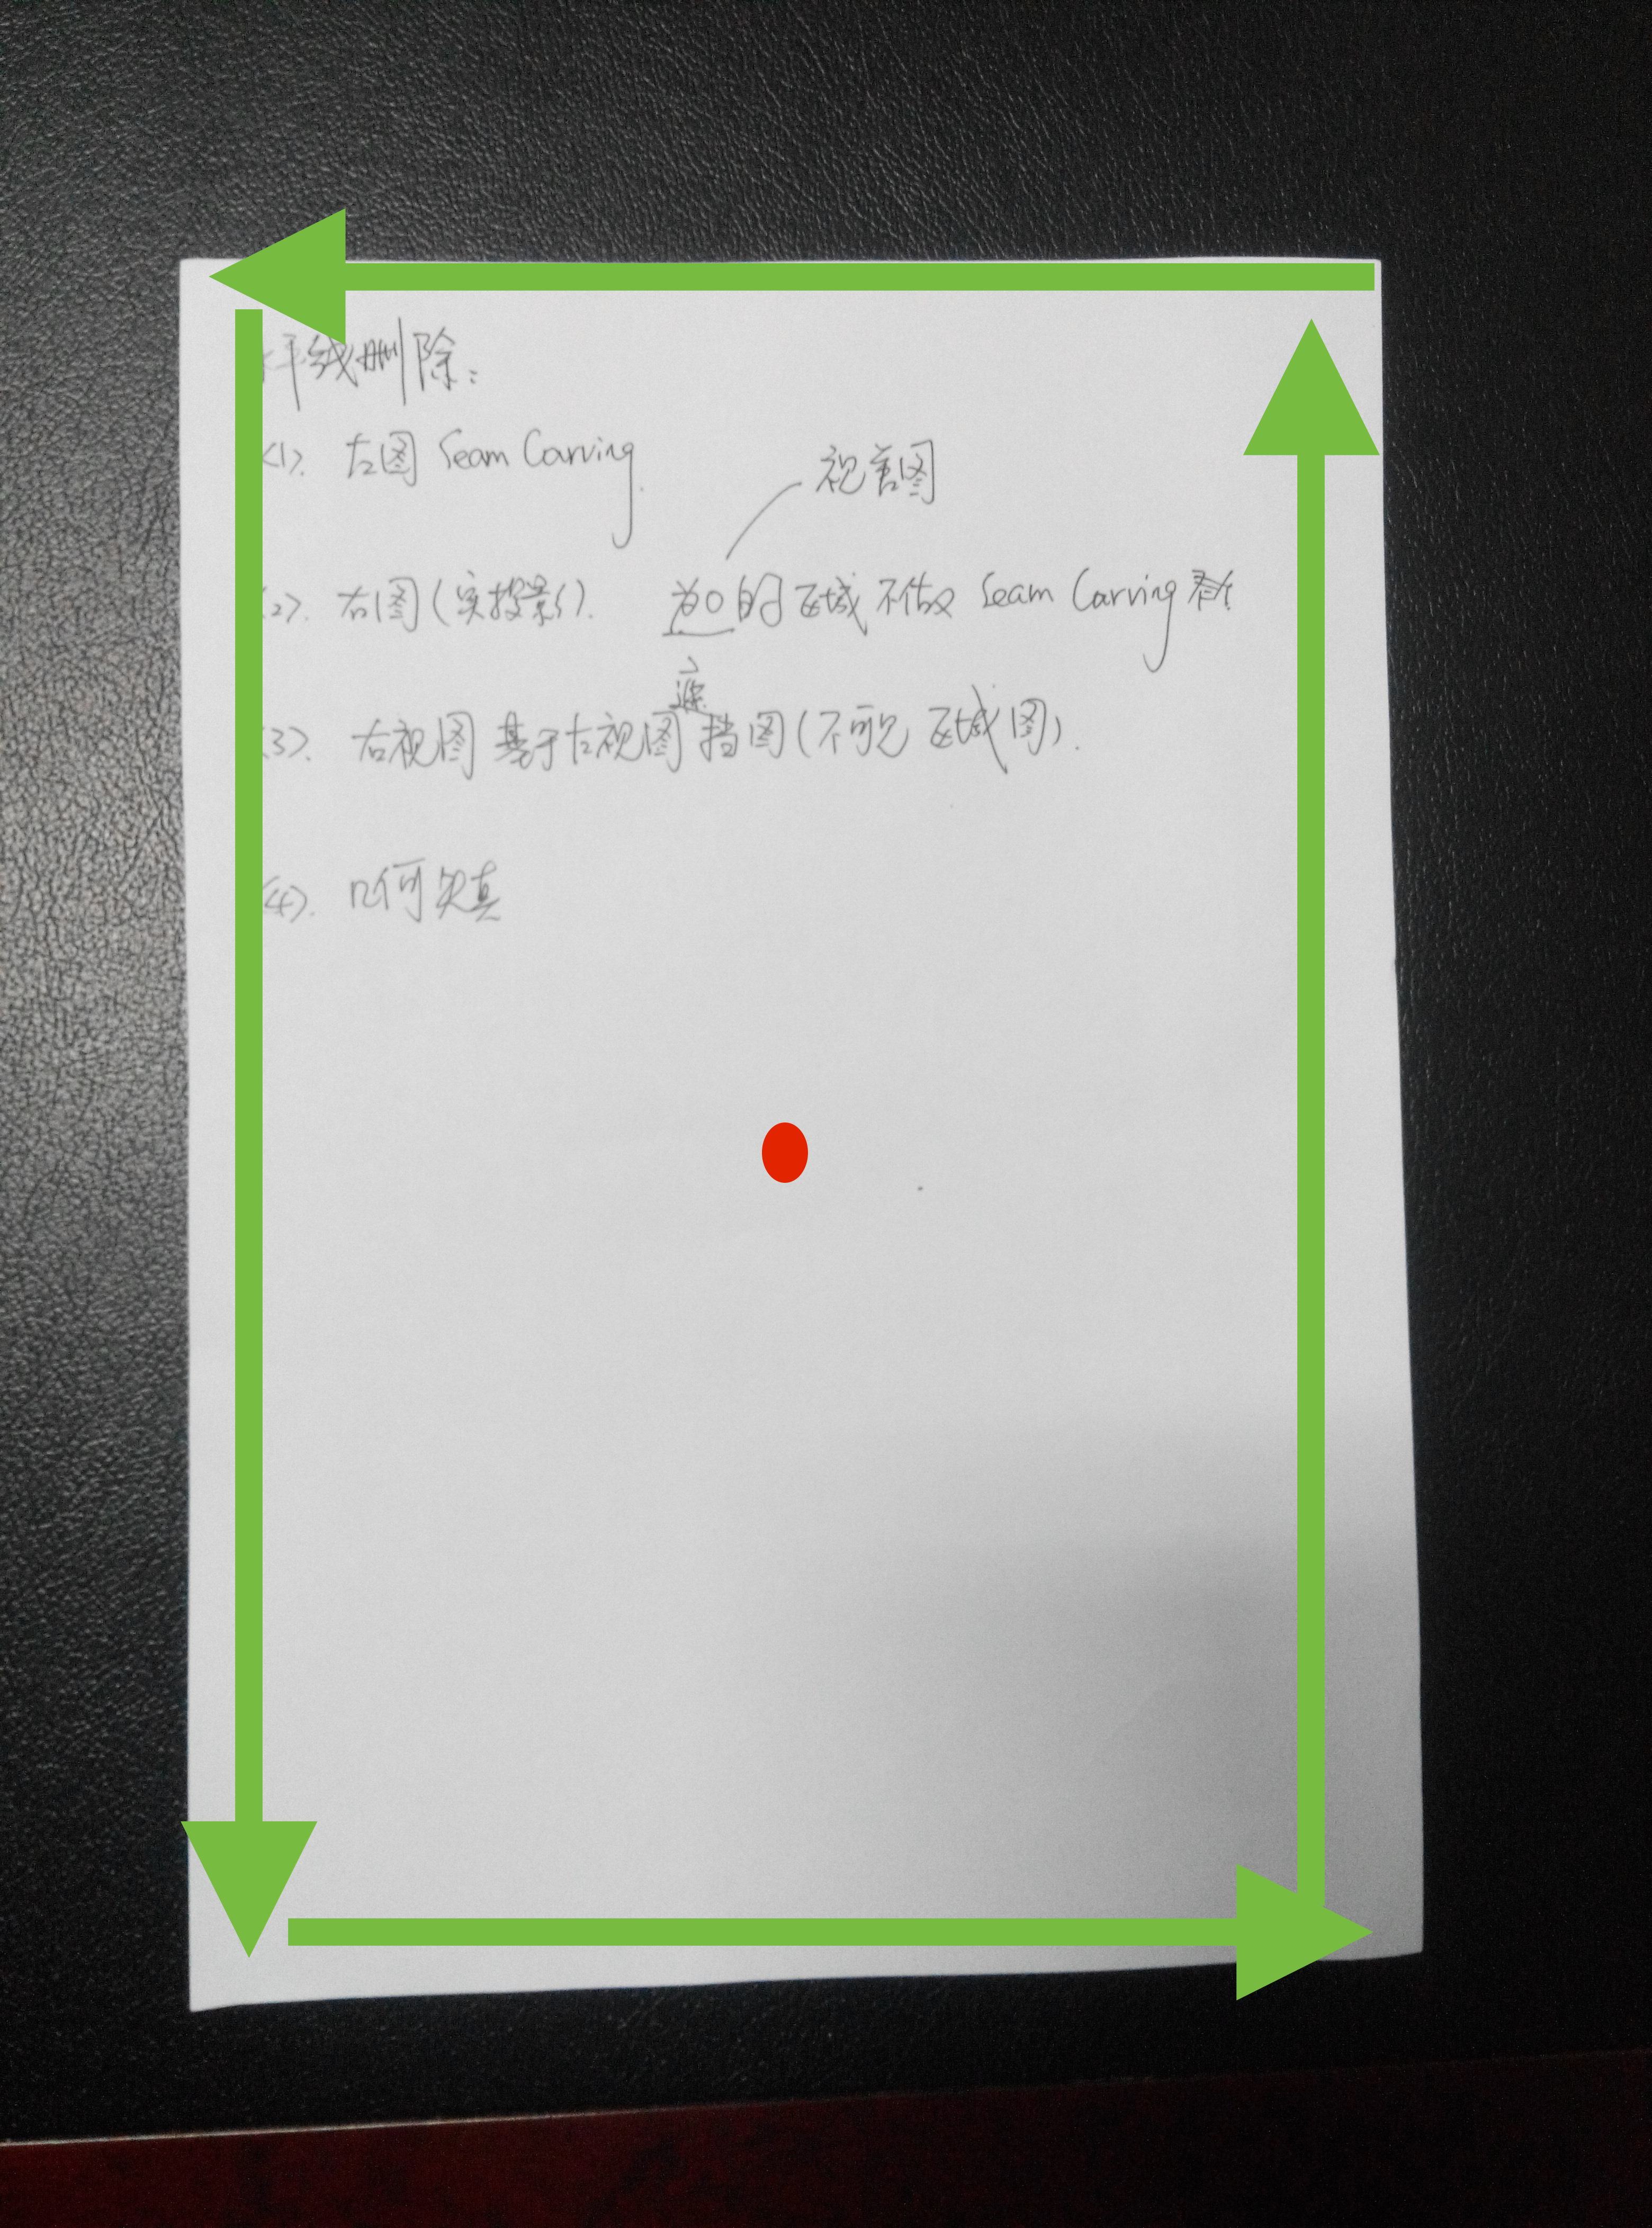 线删除：
<1>. 左图 Seam Carving.
视差图
<2>. 右图(实投影). 为0的区域不做 Seam Carving
遮
<3>. 右视图基于左视图挡图(不可见区域图).
<4>. 几何失真